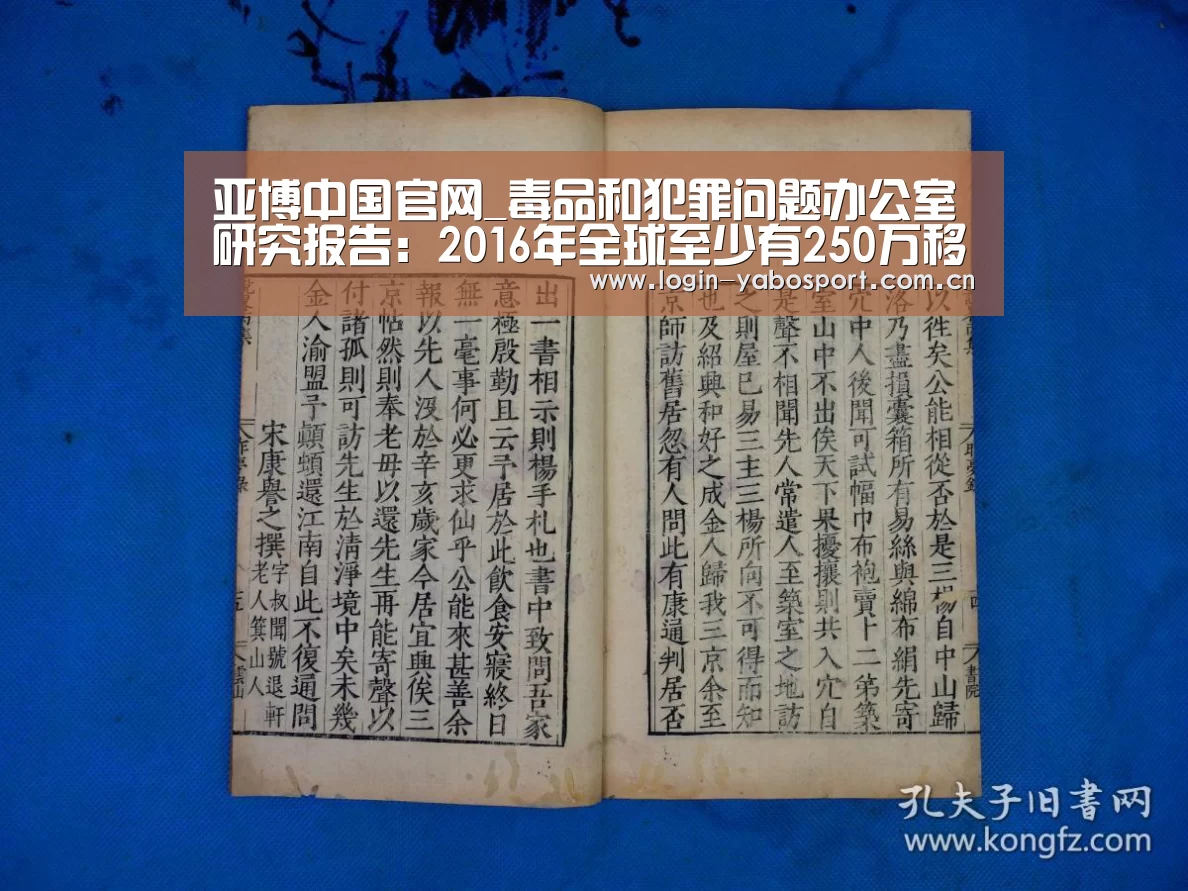 亚博中国官网_毒品和犯罪问题办公室
研究报告：2016年全球至少有250万移
www.login-yabosport.com.cn
以徃矣公能相從否於是三楊自中山歸
洛乃盡損囊箱所有易絲與綿布絹先寄
穴中人後聞可試幅巾布袍賣卜二第築
室山中不出俟天下果擾攘則共入穴自
是聲不相聞先人常遣人至築室之地訪
之則屋已易三主三楊所向不可得而知
也及紹興和好之成金人歸我三京余至
京師訪舊居忽有人問此有康通判居否
出一書相示則楊手札也書中致問吾家
意極殷勤且云予居於此飲食安寢終日
無一毫事何必更求仙乎公能來甚善余
報以先人沒於辛亥歲家今居宜興俟三
京帖然則奉老母以還先生再能寄聲以
付諸孤則可訪先生於清淨境中矣未幾
金人渝盟予顛頓還江南自此不復通問
宋康譽之撰
字叔聞號退軒
老人箕山人
四
書院
五
雲山
孔夫子旧書网
www.kongfz.com